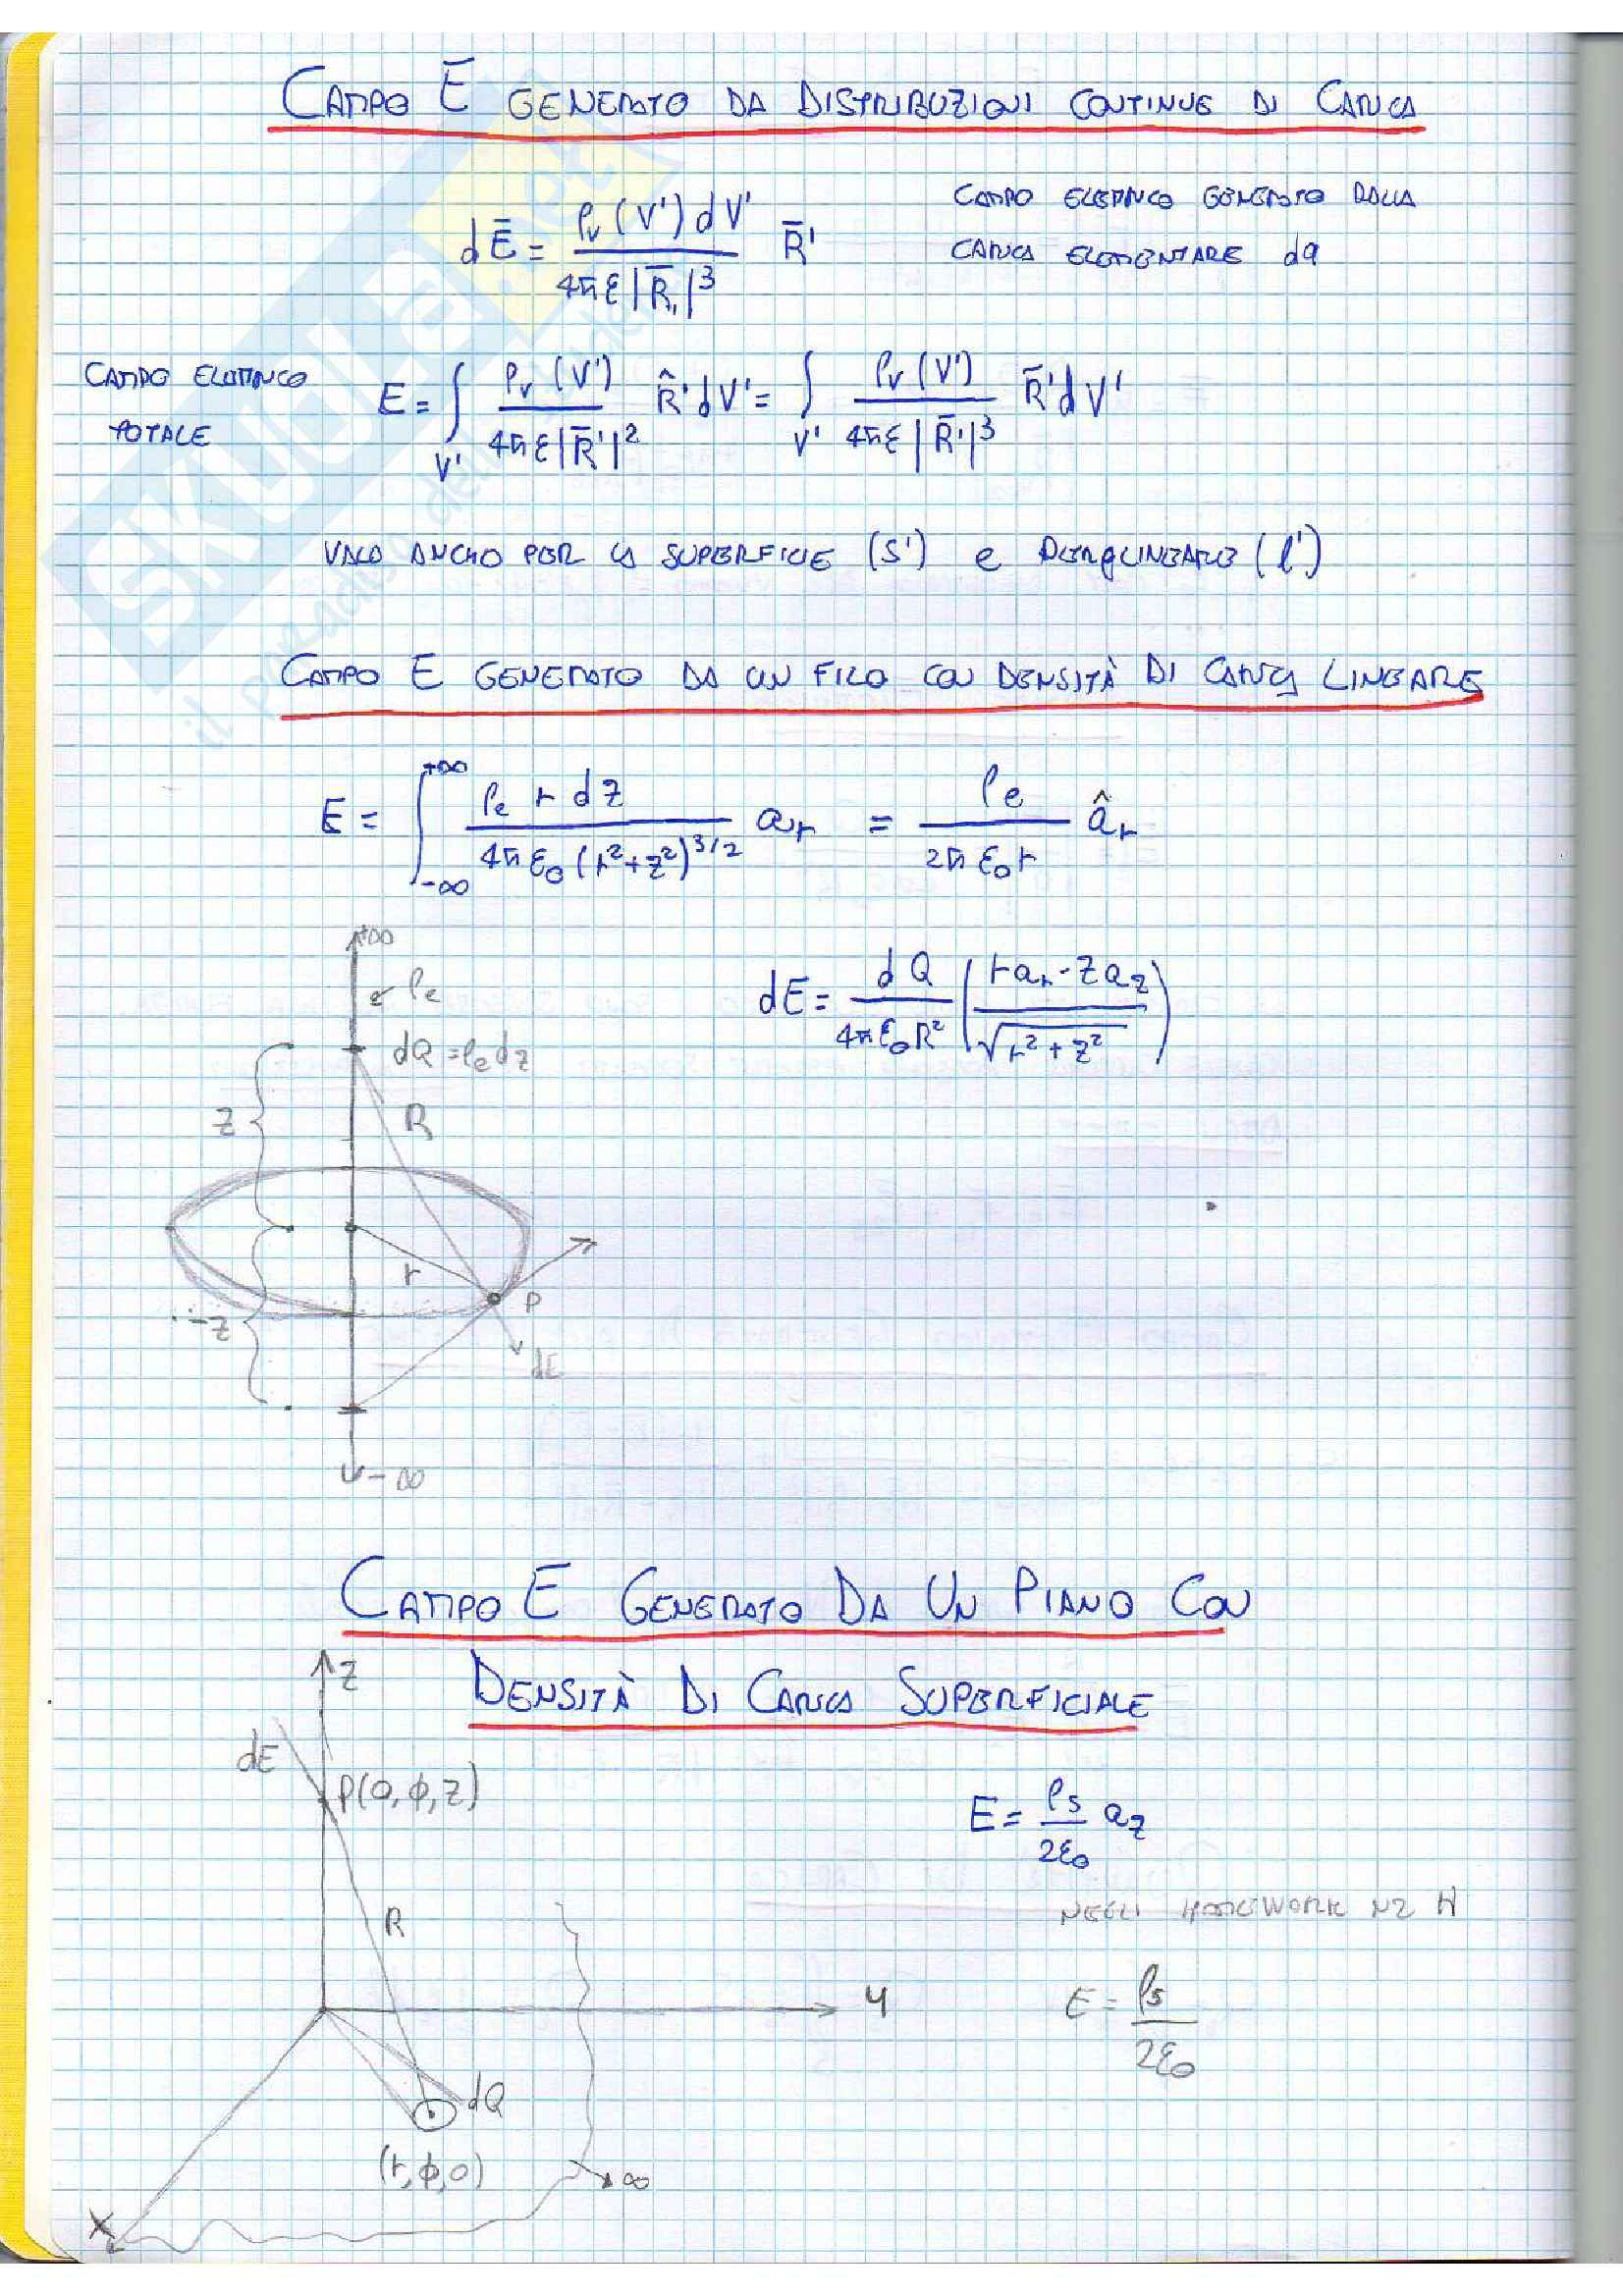 CAMPO E GENERATO DA DISTRIBUZIONI CONTINUE DI CARICA
dĒ = ρv(V')dV' / 4πε|R̄'|³ R̄'
CAMPO ELETTRICO GENERATO DALLA
CARICA ELEMENTARE dq
CAMPO ELETTRICO
TOTALE
E = ∫V' ρv(V') / 4πε|R̄'|² R̂'dV' = ∫V' ρv(V') / 4πε|R̄'|³ R̄'dV'
VALE ANCHE PER LA SUPERFICIE (S') e (ℓ')
CAMPO E GENERATO DA UN FILO CON DENSITÀ DI CARICA LINEARE
E = ∫-∞+∞ ρe r dz / 4πε0(r²+z²)^3/2 ar = ρe / 2πε0r âr
+∞
ρe
dQ = ρedz
dE = dQ / 4πε0R² (rar - zaz / √r²+z²)
z
R
r
P
-z
dE
-∞
CAMPO E GENERATO DA UN PIANO CON
DENSITÀ DI CARICA SUPERFICIALE
z
dE
P(0,ϕ,z)
E = ρs / 2ε0 az
R
NEGLI HOMEWORK
y
E = ρs / 2ε0
dQ
(r,ϕ,0)
∞
x
SKUOLA.net